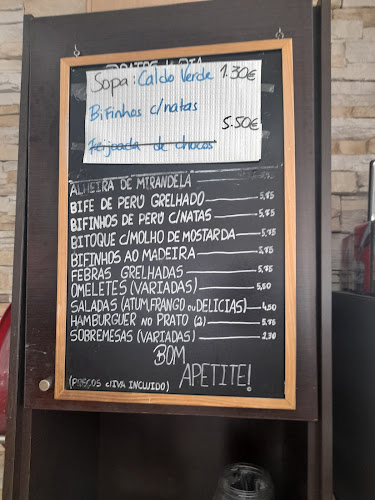 PRATOS do DIA
Sopa: Caldo Verde 1.30€
Bifinhos c/natas
5.50€
Feijoada de chocos
ALHEIRA DE MIRANDELA
BIFE DE PERÚ GRELHADO 5,75
BIFINHOS DE PERÚ C/NATAS 5,75
BITOQUE C/MOLHO DE MOSTARDA 5,75
BIFINHOS AO MADEIRA 5,75
FEBRAS GRELHADAS 5,75
OMELETES (VARIADAS) 5,50
SALADAS (ATUM, FRANGO ou DELICIAS) 4,50
HAMBURGUER NO PRATO (2) 5,75
SOBREMESAS (VARIADAS) 2,30
BOM
APETITE!
(PREÇOS C/IVA INCLUIDO)